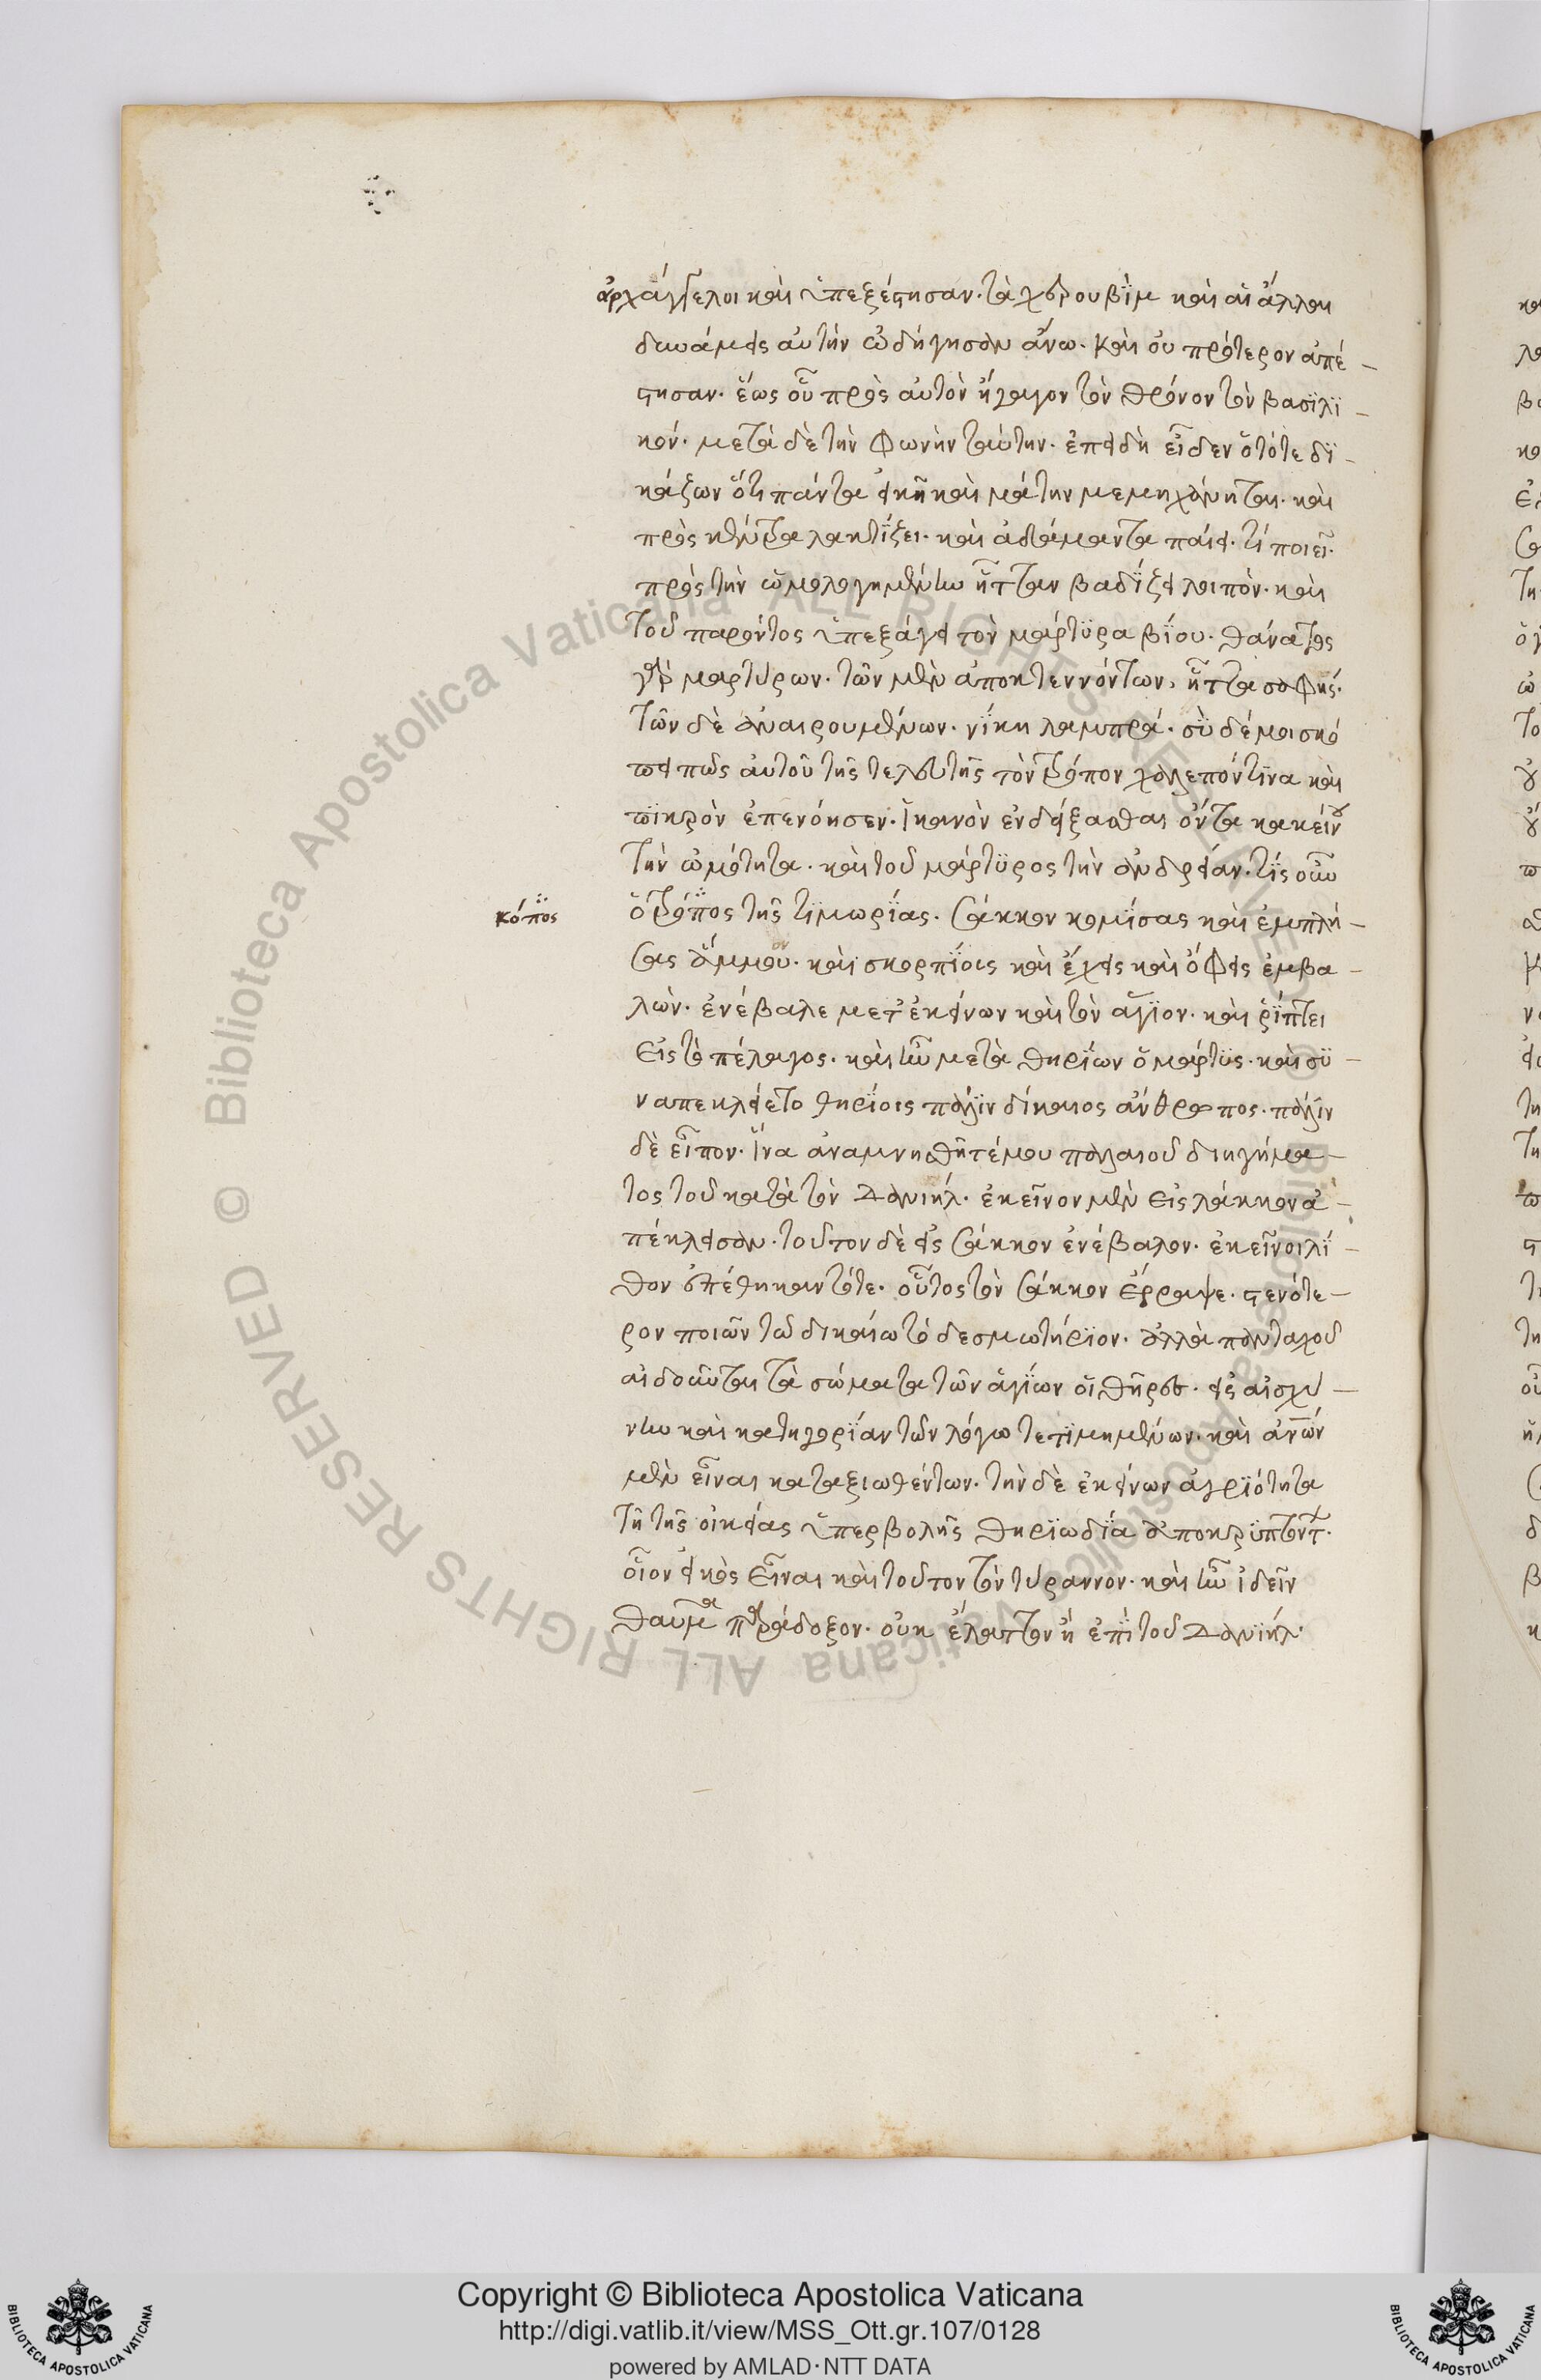 ἀρχάγγελοι καὶ ὑπεξέστησαν. τὰ χερουβὶμ καὶ αἱ ἄλλαι
δυνάμεις αὐτὴν ὡδήγησαν ἄνω. καὶ οὐ πρότερον ἀπέ-
στησαν. ἕως οὗ πρὸς αὐτὸν ἤγαγον τὸν θρόνον τὸν βασιλι-
κόν. μετὰ δὲ τὴν φωνὴν ταύτην. ἐπειδὴ εἶδεν ὁ τότε δι-
κάζων ὅτι πάντα εἰκῆ καὶ μάτην μεμηχάνηται. καὶ
πρὸς κέντρα λακτίζει. καὶ ἀδάμαντα παίει. τί ποιεῖ.
πρὸς τὴν ὡμολογημένην ἧτταν βαδίζει λοιπὸν. καὶ
τοῦ παρόντος ὑπεξάγει τὸν μάρτυρα βίου. θάνατος
γὰρ μαρτύρων. τῶν μὲν ἀποκτεννόντων, ἧττα σαφής.
τῶν δὲ ἀναιρουμένων. νίκη λαμπρά. σὺ δέ μοι σκό
πει πῶς αὐτοῦ τῆς τελευτῆς τὸν τρόπον χαλεπόν τινα καὶ
πικρὸν ἐπενόησεν. ἱκανὸν ἐνδείξασθαι ὄντα κακείνου
τὴν ὠμότητα. καὶ τοῦ μάρτυρος τὴν ἀνδρείαν. τίς οὖν
ὁ τρόπος τῆς τιμωρίας. σάκκον κομίσας καὶ ἐμπλή-
κόπος
σας ἄμμου. καὶ σκορπίοις καὶ ἔχεις καὶ ὄφεις ἐμβα-
λὼν. ἐνέβαλε μετ' ἐκείνων καὶ τὸν ἅγιον. καὶ ῥίπτει
εἰς τὸ πέλαγος. καὶ ἦν μετὰ θηρίων ὁ μάρτυς. καὶ συ-
ναπεκλείετο θηρίοις πάλιν δίκαιος ἄνθρωπος. πάλιν
δὲ εἶπον. ἵνα ἀναμνησθῆτέ μου παλαιοῦ διηγήμα-
τος τοῦ κατὰ τὸν Δανιήλ. ἐκεῖνον μὲν εἰς λάκκον ἀ-
πέκλεισαν. τοῦτον δὲ εἰς σάκκον ἐνέβαλον. ἐκεῖνοι λί-
θον ἐπέθηκαν τότε. οὗτος τὸν σάκκον ἔρραψε. στενότε-
ρον ποιῶν τῶ δικαίω τὸ δεσμωτήριον. ἀλλὰ πανταχοῦ
αἰδοῦνται τὰ σώματα τῶν ἁγίων οἱ θῆρες. εἰς αἰσχύ-
νην καὶ κατηγορίαν τῶν λόγω τετιμημένων. καὶ ἀνῶν
μὲν εἶναι καταξιωθέντων. τὴν δὲ ἐκείνων ἀγριότητα
τῆ τῆς οἰκείας ὑπερβολῆς θηριωδία ἀποκρυπτόντ.
οἷον εἰκὸς εἶναι καὶ τοῦτον τὸν τύραννον. καὶ ἦν ἰδεῖν
θαῦμα παράδοξον. οὐκ ἔλαττον ἢ ἐπὶ τοῦ Δανιήλ.
Copyright © Biblioteca Apostolica Vaticana
http://digi.vatlib.it/view/MSS_Ott.gr.107/0128
powered by AMLAD·NTT DATA